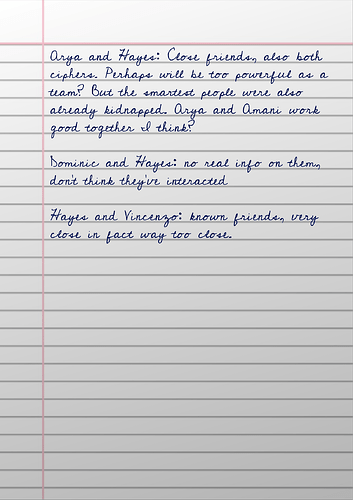 Arya and Hayes: Close friends, also both
ciphers. Perhaps will be too powerful as a
team? But the smartest people were also
already kidnapped. Arya and Amani work
good together I think?
Dominic and Hayes: no real info on them,
don't think they've interacted
Hayes and Vincenzo: known friends, very
close in fact way too close.